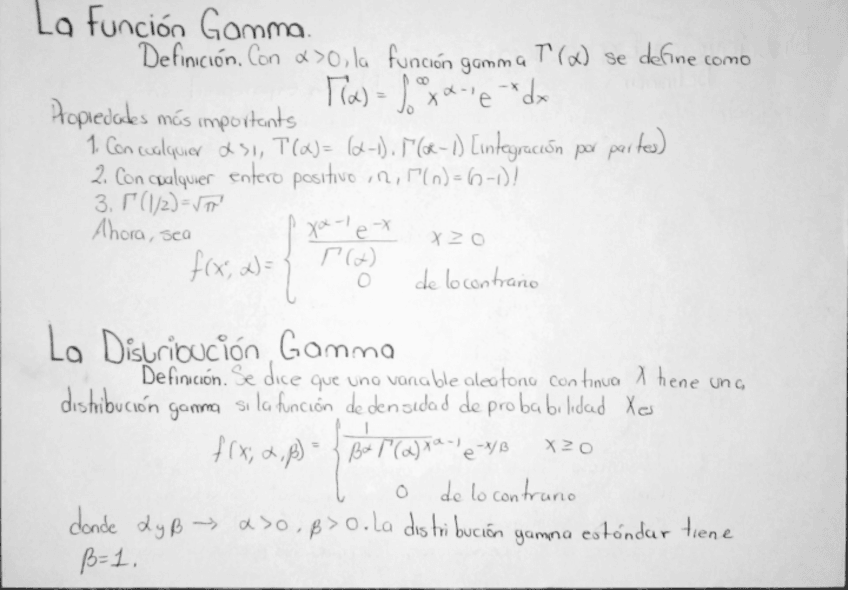 La Función Gamma.
Definición. Con α>0, la función gamma Γ(α) se define como
Γ(α) = ∫₀^∞ x^(α-1) e^(-x) dx
Propiedades más importants
1. Con cualquier α>1, Γ(α) = (α-1). Γ(α-1) [integración por partes)
2. Con cualquier entero positivo, n, Γ(n) = (n-1)!
3. Γ(1/2)=√π
Ahora, sea
f(x; α) = { x^(α-1) e^(-x) / Γ(α) x ≥ 0
0 de lo contrario
La Distribución Gamma
Definición. Se dice que una variable aleatoria continua X tiene una
distribución gamma si la función de densidad de probabilidad X es
f(x; α, β) = { 1 / β^α Γ(α) x^(α-1) e^(-x/β) x ≥ 0
0 de lo contrario
donde α y β → α>0, β>0. La distribución gamma estándar tiene
β=1.